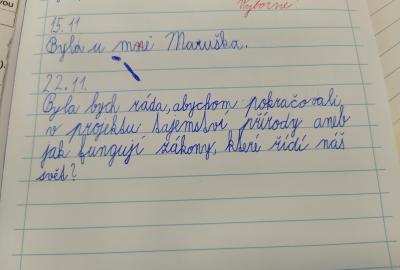 Výborně!
15.11
Byla u mně Maruška.
22.11.
Byla bych ráda, abychom pokračovali
v projektu tajemství přírody aneb
jak fungují zákony, které řídí náš
svět?